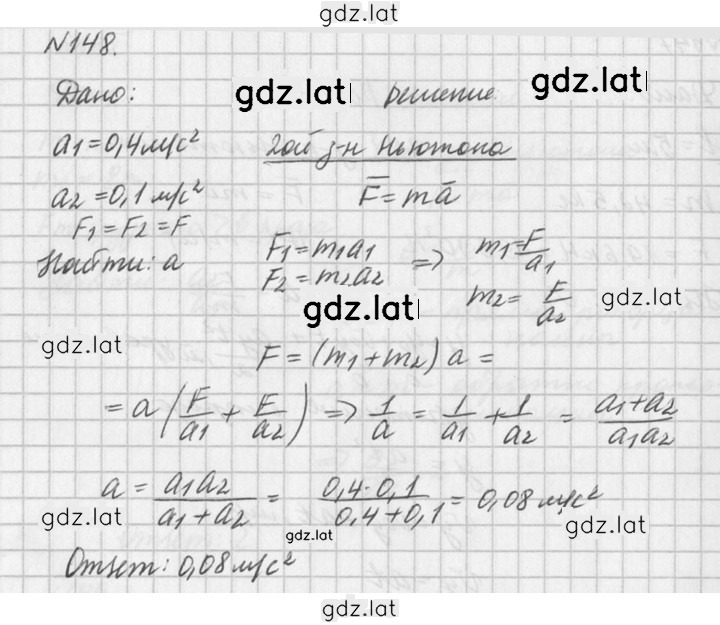 gdz.lat
№148.
Дано: gdz.lat решение. gdz.lat
a₁=0,4 м/с² 2ой з-н Ньютона
a₂=0,1 м/с² F̅=ma̅
F₁=F₂=F
Найти: a F₁=m₁a₁ => m₁=F/a₁
F₂=m₂a₂ m₂=F/a₂
gdz.lat gdz.lat gdz.lat
F=(m₁+m₂)a=
=a(F/a₁+F/a₂) => 1/a=1/a₁+1/a₂=(a₁+a₂)/(a₁a₂)
a=(a₁a₂)/(a₁+a₂)=(0,4·0,1)/(0,4+0,1)=0,08 м/с²
gdz.lat gdz.lat gdz.lat
Ответ: 0,08 м/с²
gdz.lat